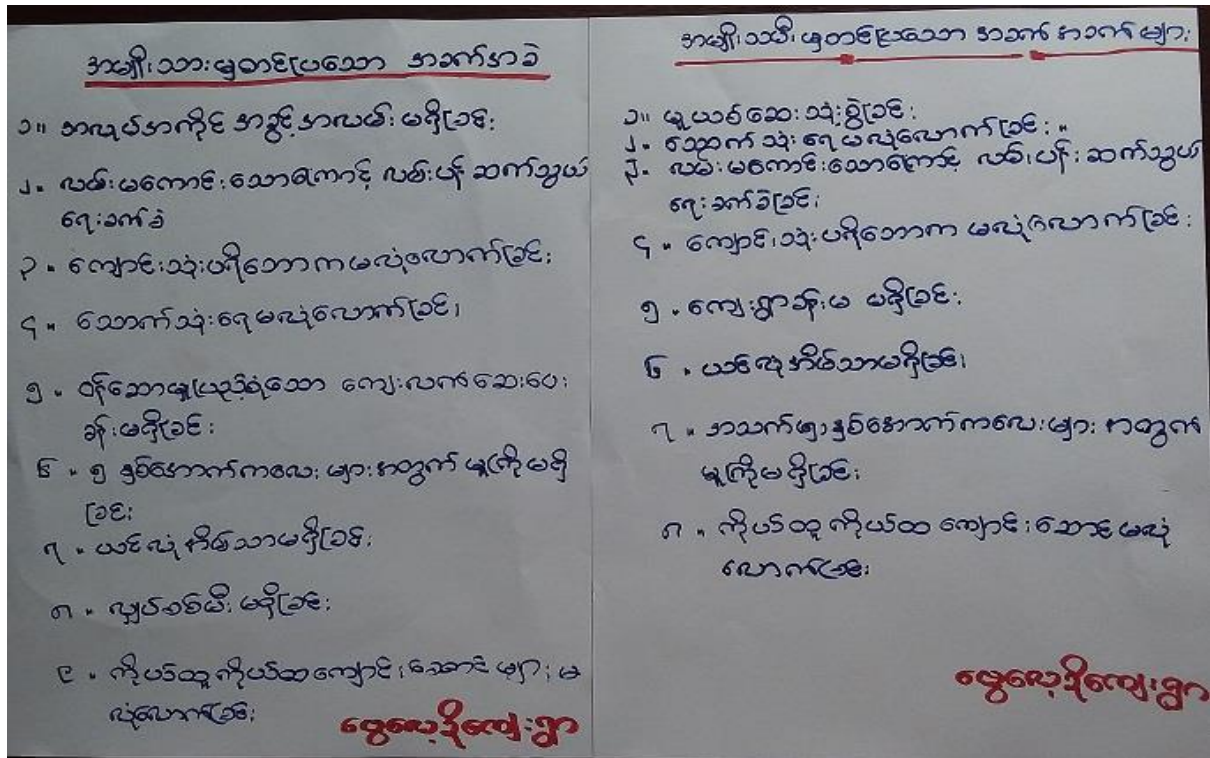 အမျိုးသားမှတင်ပြသော အခက်အခဲ
၁။ အလုပ်အကိုင် အခွင့်အလမ်း မရှိခြင်း
၂။ လမ်းမကောင်းသောကြောင့် လမ်းပန်းဆက်သွယ်
ရေးခက်ခဲ
၃။ ကျောင်းသုံးပရိဘောဂမလုံလောက်ခြင်း
၄။ သောက်သုံးရေမလုံလောက်ခြင်း
၅။ ဝန်ဆောင်မှုပြည့်စုံသော ကျေးလက်ဆေးပေး
ခန်းမရှိခြင်း
၆။ ၅ နှစ်အောက်ကလေးများအတွက် မူကြိုမရှိ
ခြင်း
၇။ ယင်လုံအိမ်သာမရှိခြင်း
၈။ လျှပ်စစ်မီးမရှိခြင်း
၉။ ကိုယ်ထူကိုယ်ထကျောင်းဆောင်များမ
လုံလောက်ခြင်း
အမျိုးသမီးမှတင်ပြသော အခက်အခက်များ
၁။ မူးယစ်ဆေးသုံးစွဲခြင်း
၂။ သောက်သုံးရေမလုံလောက်ခြင်း။
၃။ လမ်းမကောင်းသောကြောင့် လမ်းပန်းဆက်သွယ်
ရေးခက်ခဲခြင်း
၄။ ကျောင်းသုံးပရိဘောဂ မလုံလောက်ခြင်း
၅။ ကျေးရွာခန်းမ မရှိခြင်း
၆။ ယင်လုံအိမ်သာမရှိခြင်း
၇။ အသက်၅နှစ်အောက်ကလေးများ အတွက်
မူကြိုမရှိခြင်း
၈။ ကိုယ်ထူကိုယ်ထ ကျောင်းဆောင်မလုံ
လောက်ခြင်း